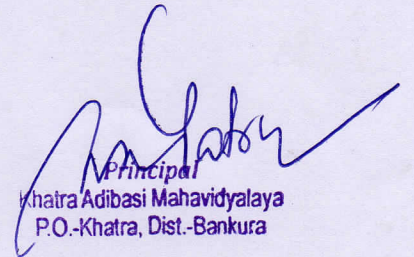 Principal
Khatra Adibasi Mahavidyalaya
P.O.-Khatra, Dist.-Bankura